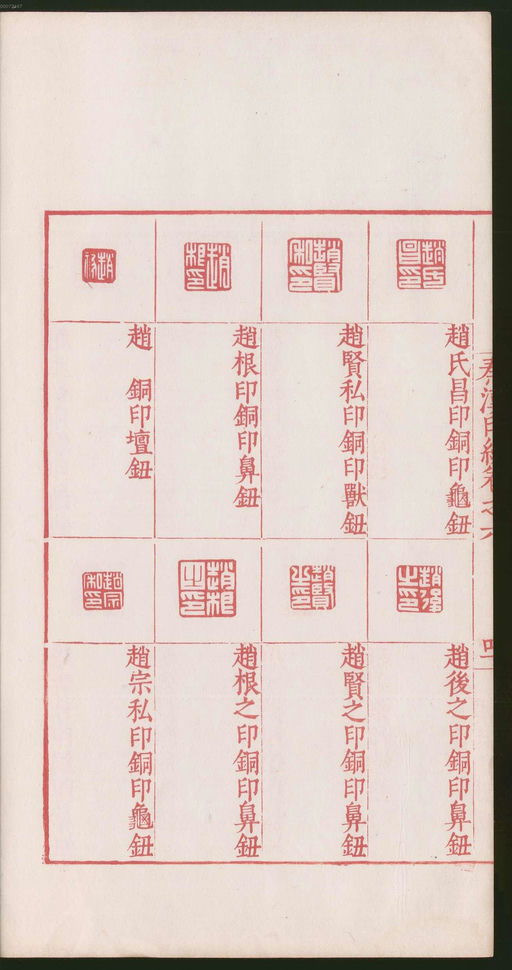 趙氏昌印銅印龜鈕
趙賢私印銅印獸鈕
趙根印銅印鼻鈕
趙 銅印壇鈕
趙後之印銅印鼻鈕
趙賢之印銅印鼻鈕
趙根之印銅印鼻鈕
趙宗私印銅印龜鈕